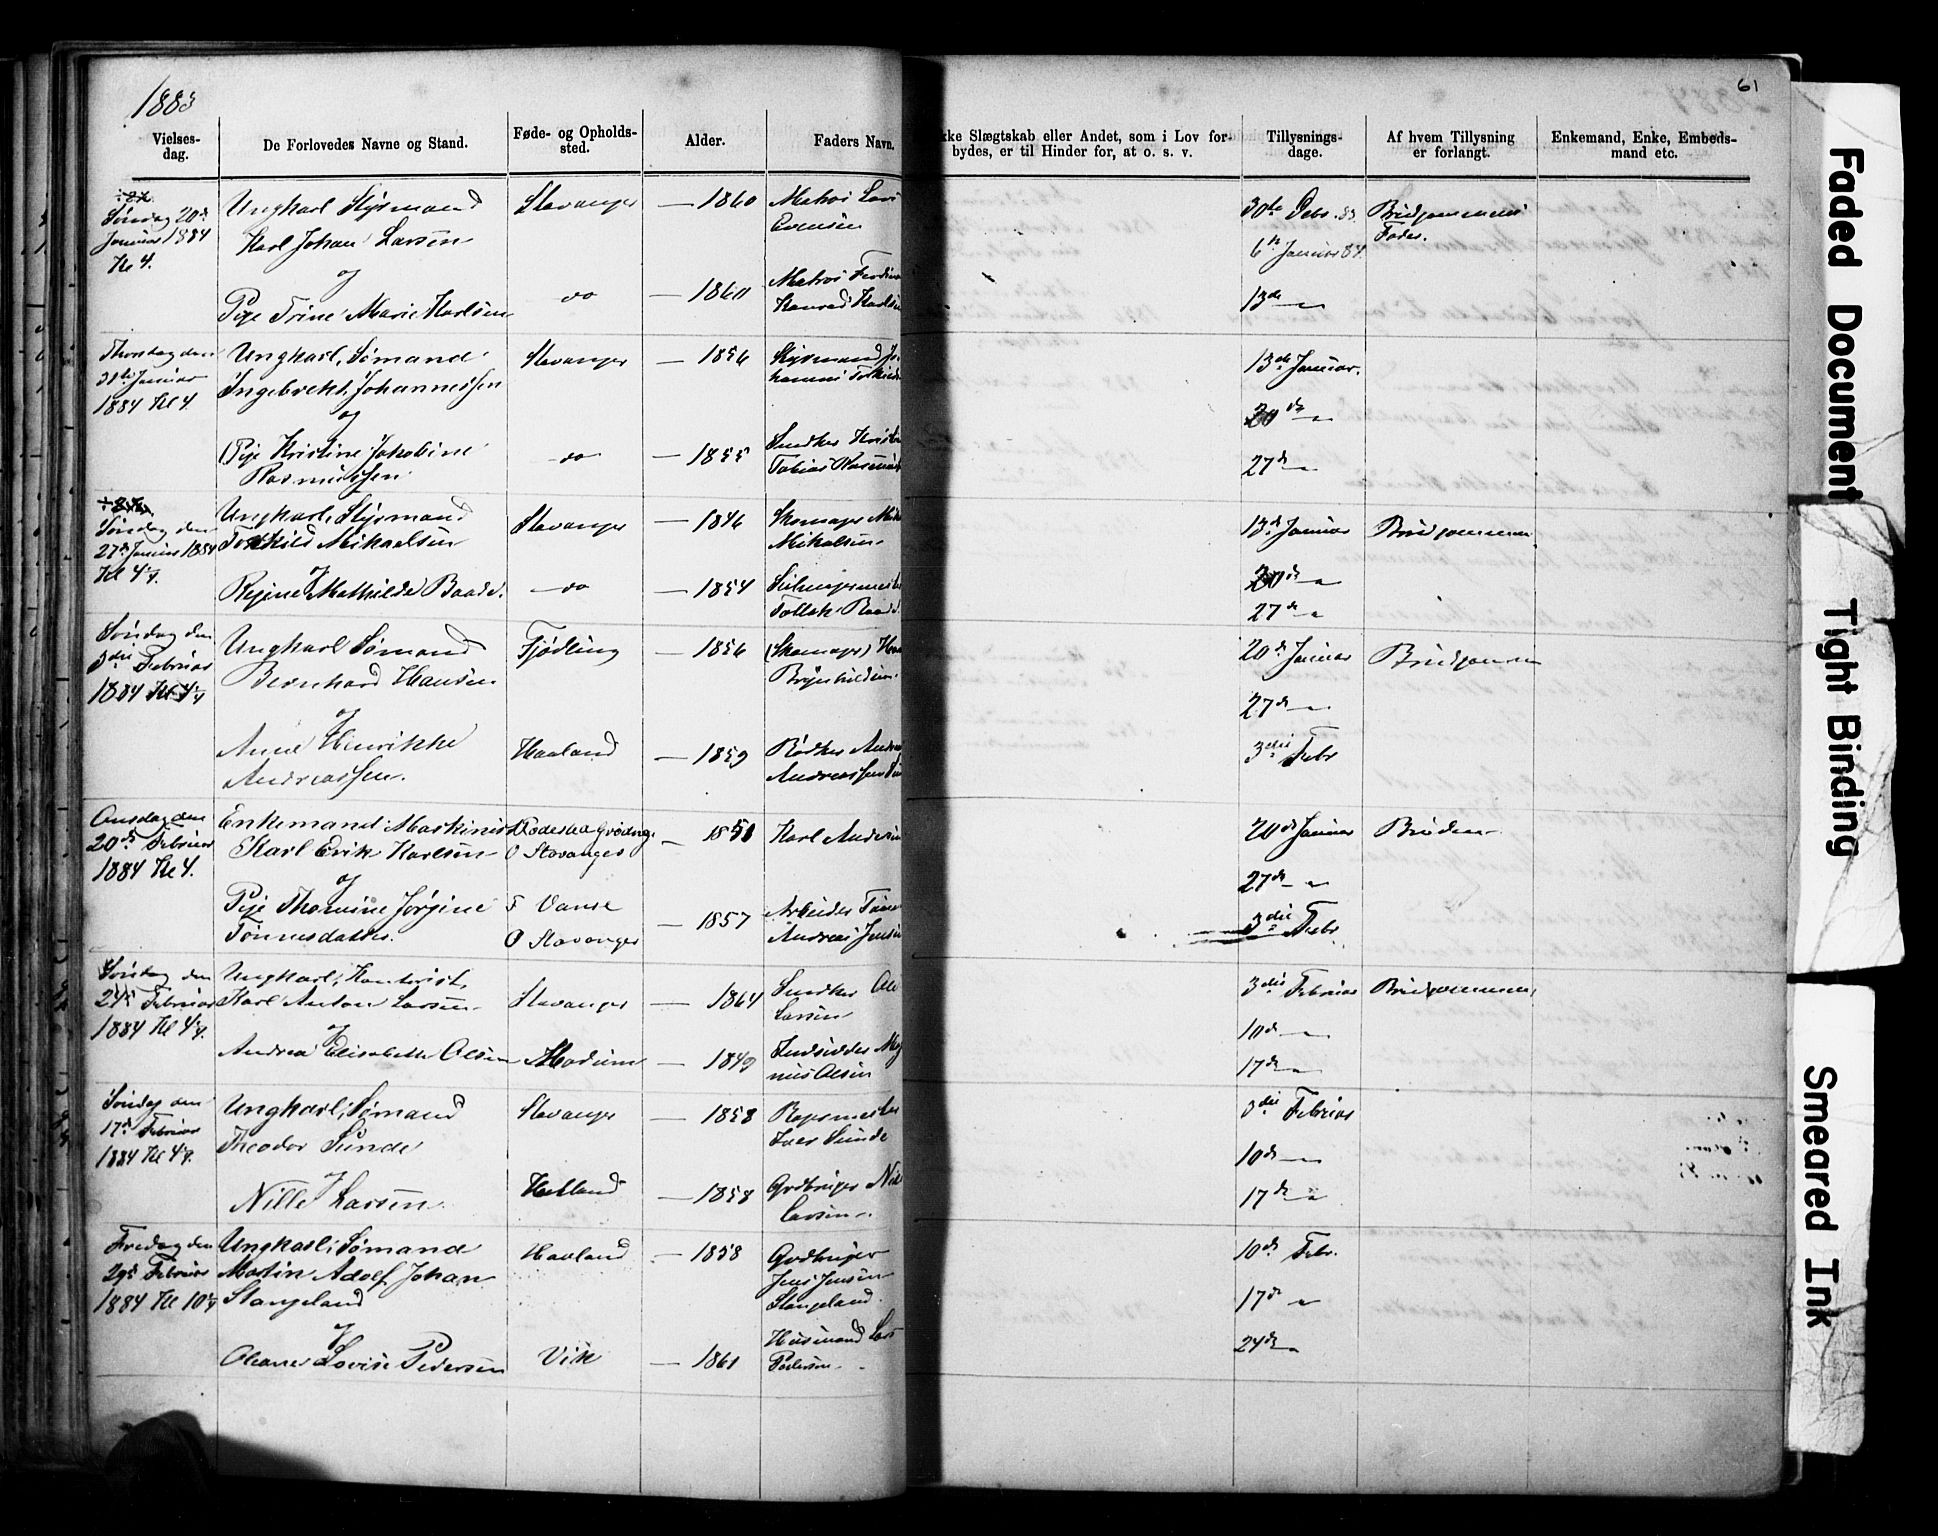 1883
61
Vielses-
dag.
De Forlovedes Navne og Stand.
Føde- og Opholds-
sted.
Alder.
Faders Navn.
kke Slægtskab eller Andet, som i Lov for-
bydes, er til Hinder for, at o. s. v.
Tillysnings-
dage.
Af hvem Tillysning
er forlangt.
Enkemand, Enke, Embeds-
mand etc.
Søndag 20de
Januar 1884
Kl 4.
Ungkarl Styrmand
Karl Johan Larsen
og
Pige Trine Marie Karlsen
Stavanger
do
— 1860
— 1860
Matros Lars
Evensen
Matros Ferdina
Konrad Karlsen
30te Debr. 83
6te Januar 84.
13de —"—
Brudgommens
Fader.
Thorsdag den
31te Januar
1884 Kl 4.
Ungkarl, Sømand
Ingebrekt Johannessen
og
Pige Kristine Jakobine
Rasmussen
Stavanger
do
— 1856
— 1855
Styrmand Jo-
hannes
Snedker Kristen
Tobias Rasmuss
13de Januar.
20de —"—
27de —"—
Søndag den
27de Januar 1884
Kl 4 1/4.
Ungkarl, Styrmand
Torkild Mikaelsen
og
Regine Mathilde Baade.
Stavanger
do
— 1846
— 1854
Skomager
Mikalsen
Seilmagermeste
Tollak Baade
13de Januar
20de —"—
27de —"—
Brudgommen
Søndag den
3die Februar
1884 Kl 4 1/4
Ungkarl Sømand
Bernhard Hansen
og
Anne Henrikke
Andreassen.
Fjødling
Haaland
— 1856
— 1859
(Skomager) Han
Brynhildsen
Bødker Andrea
Andreassen
20de Januar
27de —"—
3die Febr
Brudgommen
Onsdag den
20de Februar
1884 Kl 4.
Enkemand, Maskinist
Karl Erik Karlsen
og
Pige Thomine Jørgine
Tønnesdatter.
O Stavanger
F Vanse
O Stavanger
— 1851
— 1857
Karl Andersen
Arbeider Tønne
Andreas Jensen
20de Januar
27de —"—
3die Febr
Bruden
Søndag den
24de Februar
1884 Kl 4 1/4.
Ungkarl, Kontorist,
Karl Anton Larsen
og
Andrea Elisabeth Olsen
Stavanger
Modum
— 1864
— 1849
Snedker Ole
Larsen
Indsidder Mag
nus Olsen
3die Februar
10de —"—
17de —"—
Brudgommen,
Søndag den
17de Februar
1884 Kl 4 1/4.
Ungkarl, Sømand
Theodor Sunde
og
Nille Larsen
Stavanger
Hetland
— 1858
— 1858
Rebsmester
Sunde
Gdbruger Nils
Larsen
3die Februar
10de —"—
17de —"—
Fredag den
29de Februar
1884 Kl 10 1/4
Ungkarl, Sømand
Martin Adolf Johan
Stangeland
og
Oleane Lovise Pedersen
Haaland
Vik
— 1858
— 1861
Gdbruger
Jens Jensen
Stangeland.
Husmand Lars
Pedersen
10de Febr.
17de —"—
24de —"—
Faded Document
Tight Binding
Smeared Ink